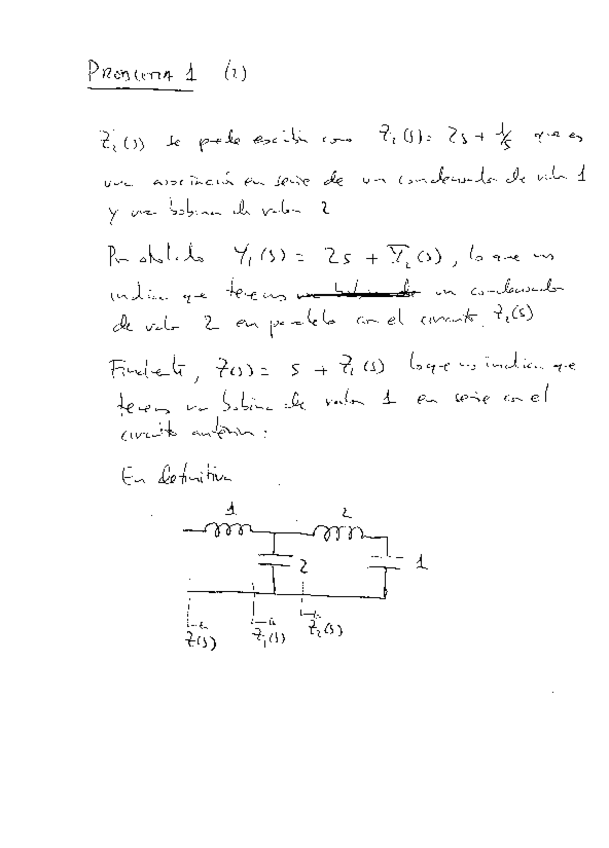 PROBLEMA 1 (2)
Z₂(s) se puede escribir como Z₂(s) = 2s + 1/s que es
una asociación en serie de un condensador de valor 1
y una bobina de valor 2
Por otro lado Y₁(s) = 2s + Y₂(s), lo que nos
indica que tenemos un condensador
de valor 2 en paralelo con el circuito Z₂(s)
Finalmente, Z(s) = s + Z₁(s) lo que nos indica que
tenemos una bobina de valor 1 en serie con el
circuito anterior:
En definitiva
1 2
2 1
Z(s) Z₁(s) Z₂(s)